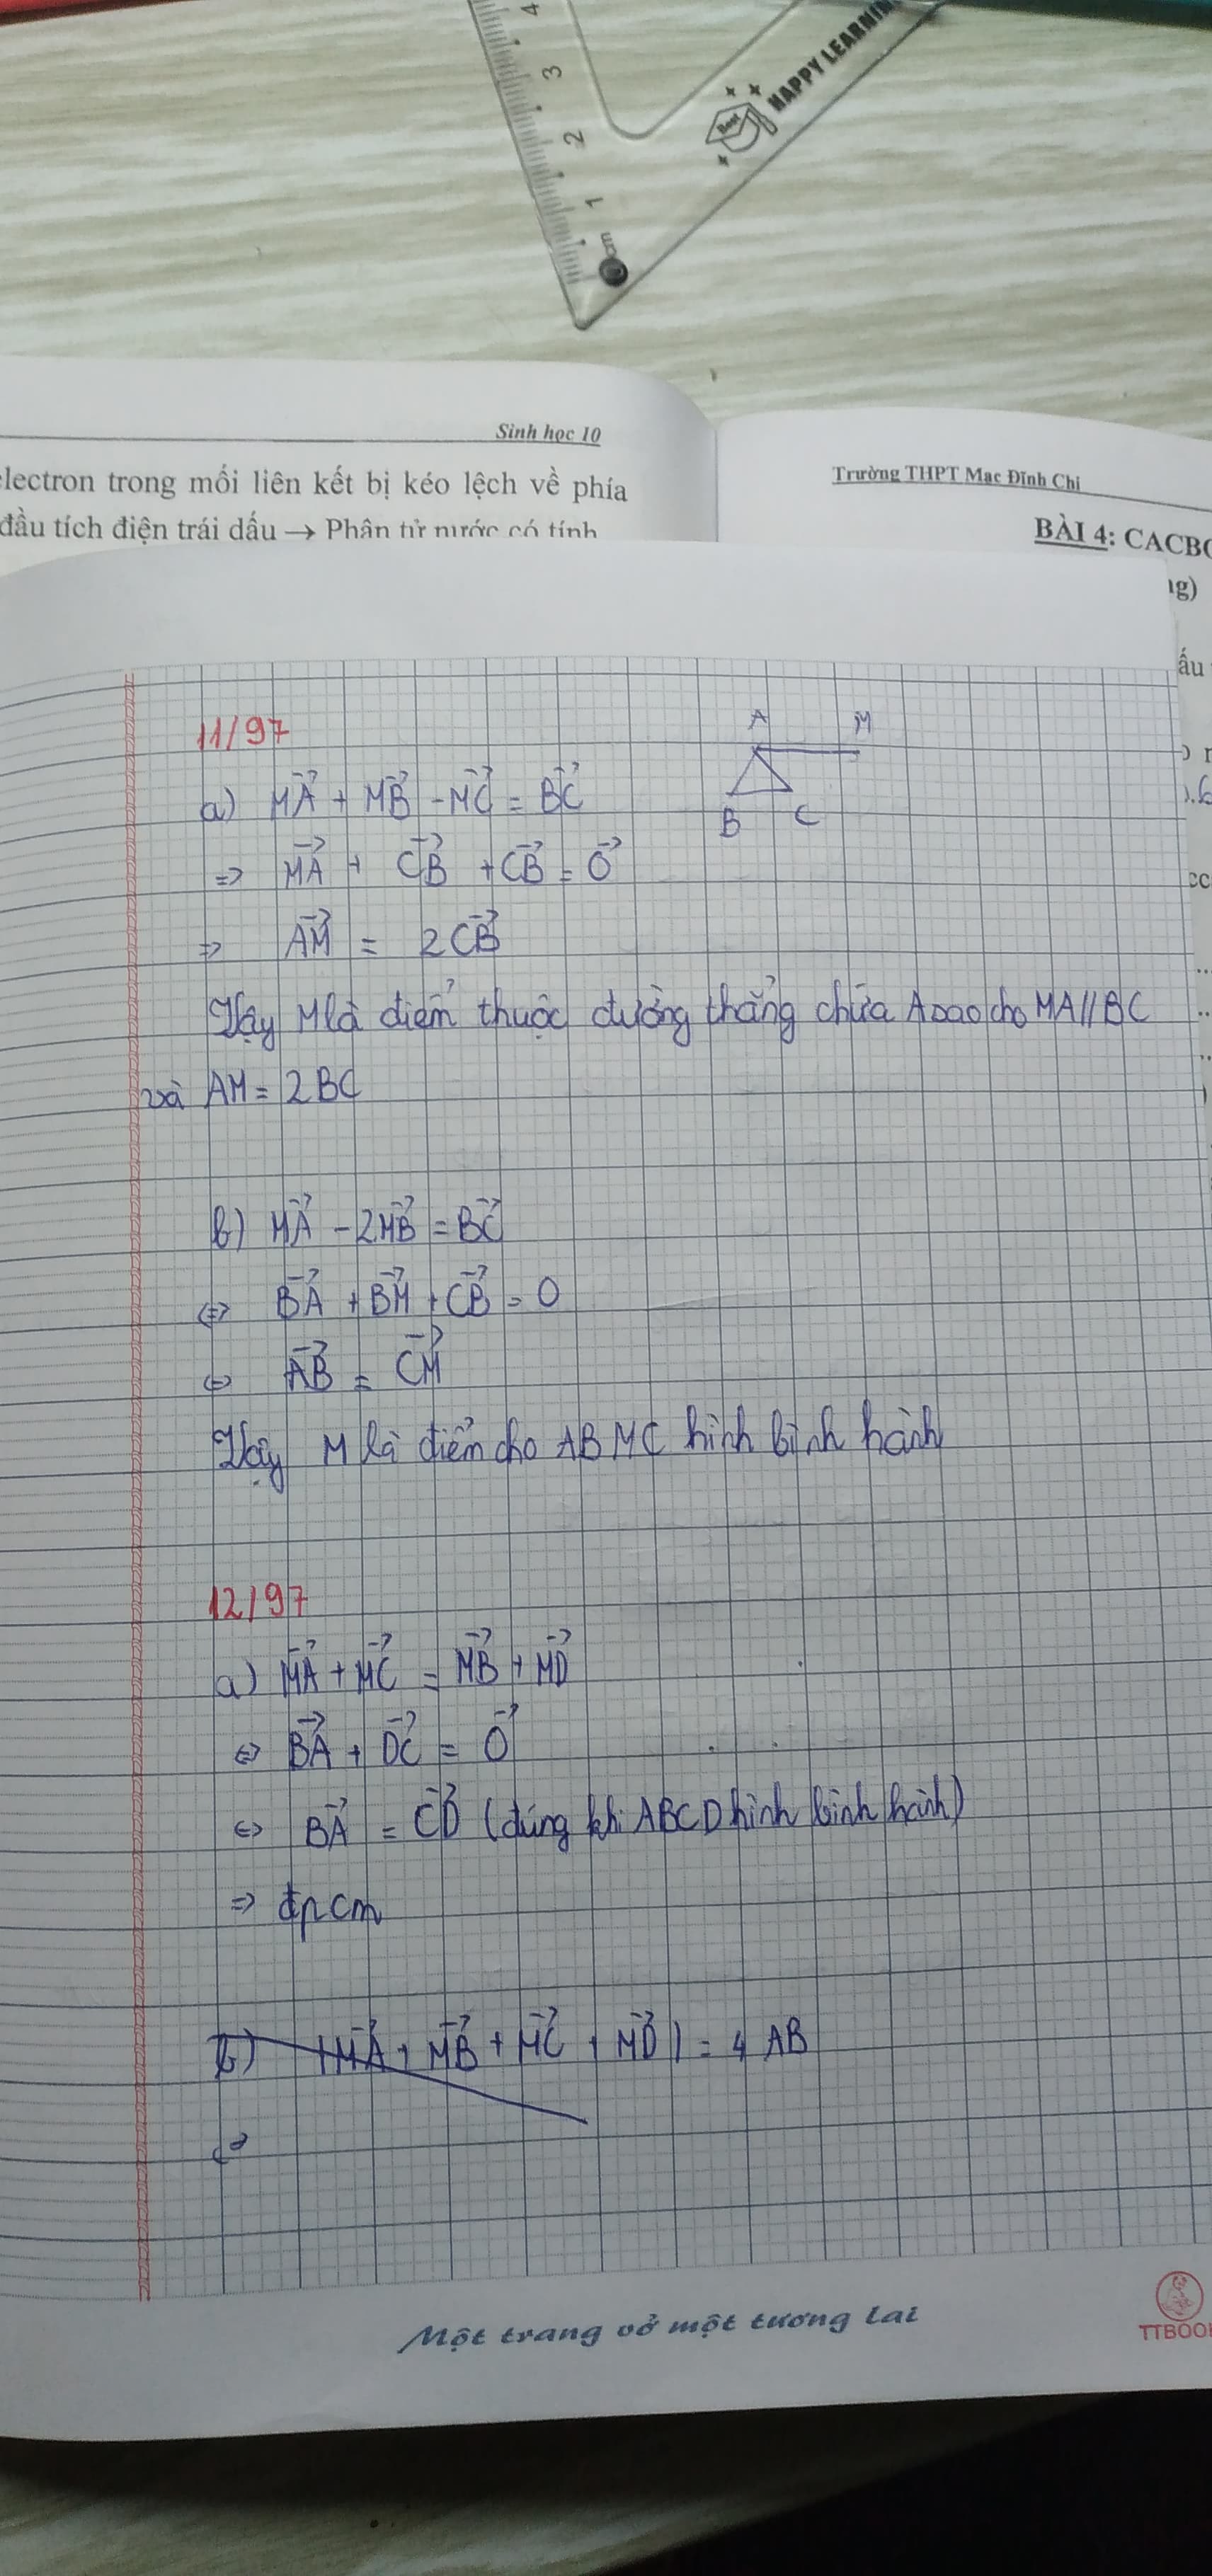 4
3
2
1
0 cm
Best
HAPPY LEARNIN
Sinh học 10
electron trong mối liên kết bị kéo lệch về phía
đầu tích điện trái dấu → Phân tử nước có tính
Trường THPT Mạc Đĩnh Chi
BÀI 4: CACBO
ấu
11/97
A M
B C
a) MA→ + MB→ - MC→ = BC→
=> MA→ + CB→ + CB→ = O→
=> AM→ = 2CB→
Vậy M là điểm thuộc đường thẳng chứa A sao cho MA // BC
và AM = 2BC
b) MA→ - 2MB→ = BC→
<=> BA→ + BM→ + CB→ = 0
<=> AB→ = CM→
Vậy M là điểm cho ABMC hình bình hành
12/97
a) MA→ + MC→ = MB→ + MD→
<=> BA→ + DC→ = O→
<=> BA→ = CD→ (đúng khi ABCD hình bình hành)
=> đpcm
b) |MA→ + MB→ + MC→ + MD→| = 4 AB
Một trang vở một tương lai
TTBOO